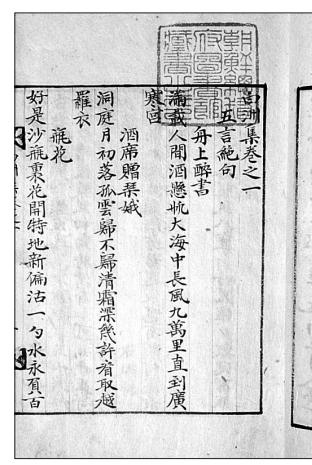 朝鮮總督
府圖書館
藏書之印
白洲集卷之一
五言絶句
舟上醉書
滿載人間酒懸帆大海中長風九萬里直到廣
寒宮
酒席贈琴娥
洞庭月初落孤雲歸不歸清霜深幾許看取越
羅衣
瓶花
好是沙瓶裏花開特地新偏沾一勺水永負百